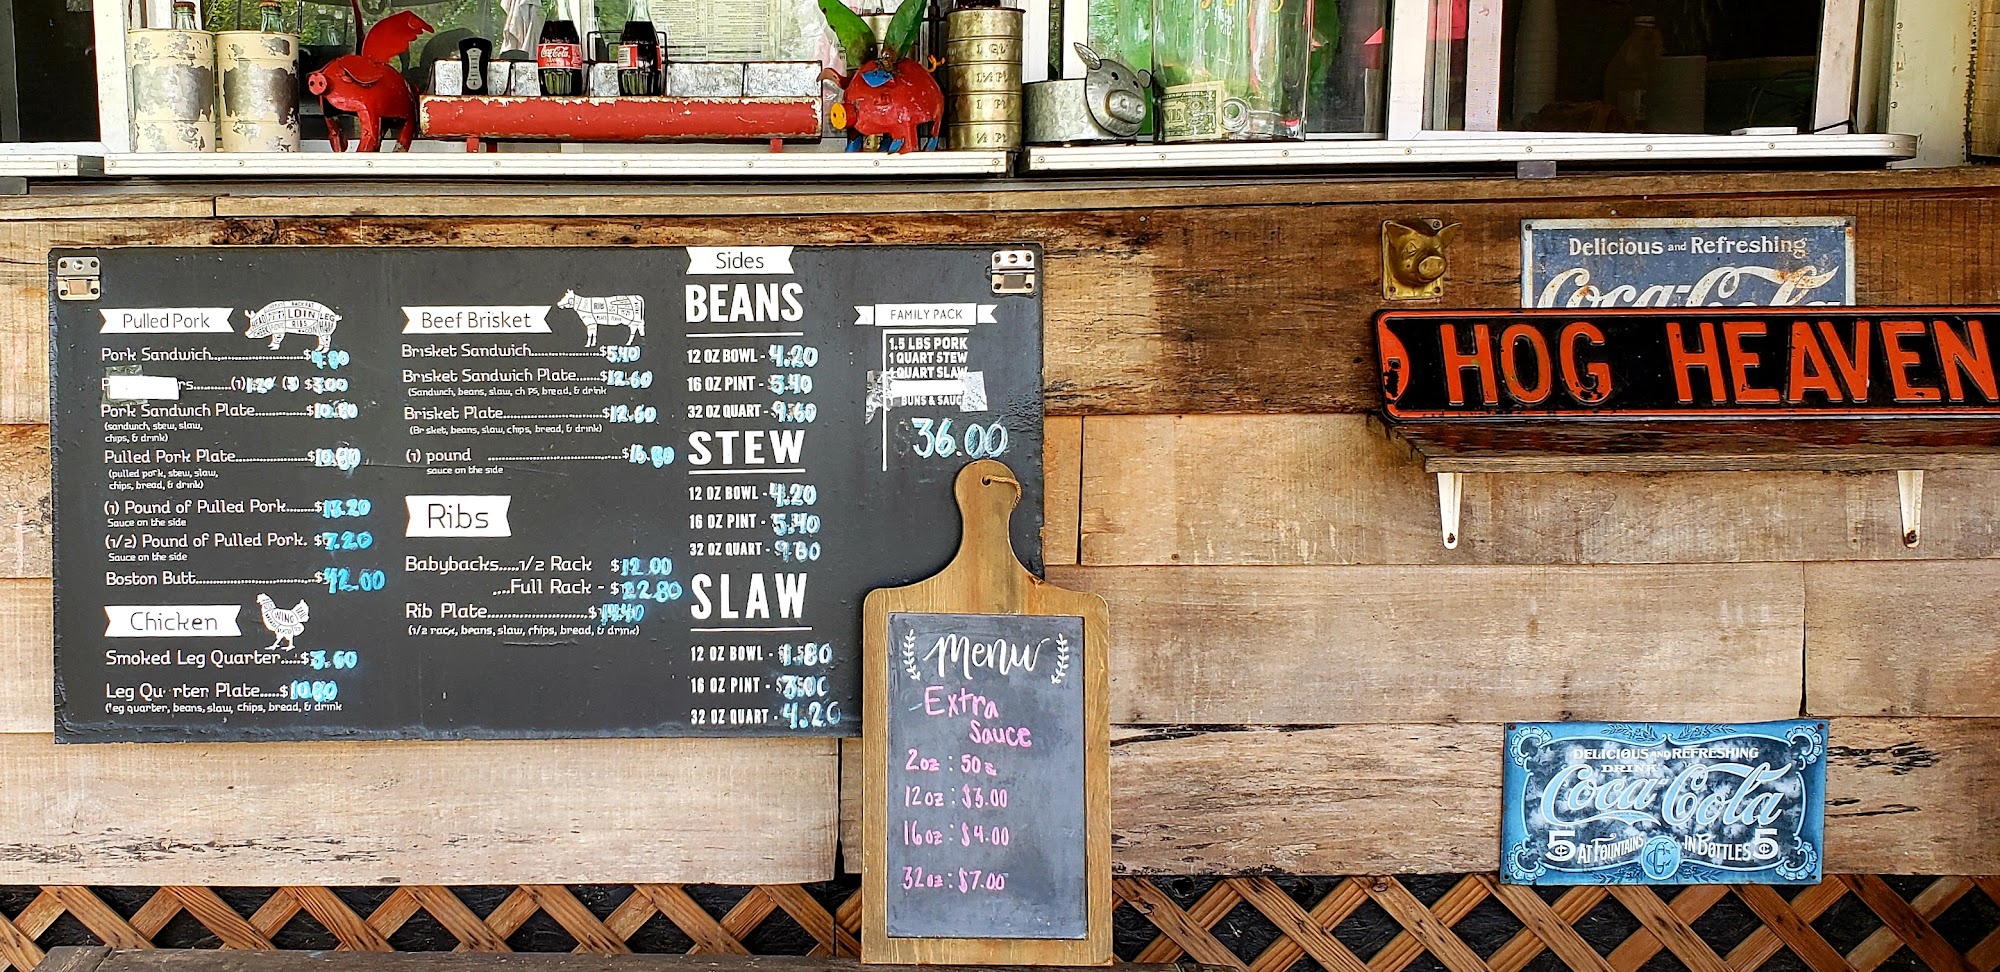 Pulled Pork
Pork Sandwich $4.80
rs (1) 1.20 (3) $3.00
Pork Sandwich Plate $10.80
(sandwich, stew, slaw,
chips, & drink)
Pulled Pork Plate $10.80
(pulled pork, stew, slaw,
chips, bread, & drink)
(1) Pound of Pulled Pork $13.20
Sauce on the side
(1/2) Pound of Pulled Pork. $7.20
Sauce on the side
Boston Butt $42.00
Chicken
WING
Smoked Leg Quarter $3.60
Leg Qu rter Plate $10.80
(leg quarter, beans, slaw, chips, bread, & drink
LOIN
RIBS
LEG
Beef Brisket
RIB
Brisket Sandwich $5.40
Brisket Sandwich Plate $12.60
(Sandwich, beans, slaw, ch ps, bread, & drink
Brisket Plate 12.60
(Br sket, beans, slaw, chips, bread, & drink)
(1) pound $16.80
sauce on the side
Ribs
Babybacks 1/2 Rack $12.00
Full Rack - $22.80
Rib Plate $14.40
(1/2 rack, beans, slaw, chips, bread, & drink)
Sides
BEANS
12 OZ BOWL - 4.20
16 OZ PINT - 5.40
32 OZ QUART - 9.60
STEW
12 OZ BOWL - 4.20
16 OZ PINT - 5.40
32 OZ QUART - 9.60
SLAW
12 OZ BOWL - 1.80
16 OZ PINT - $3.00
32 OZ QUART - 4.20
FAMILY PACK
1.5 LBS PORK
1 QUART STEW
1 QUART SLAW
BUNS & SAUC
36.00
Menu
Extra
Sauce
2oz : 50¢
12oz : $3.00
16oz : $4.00
32oz : $7.00
Coca-Cola
Delicious and Refreshing
Coca-Cola
HOG HEAVEN
DELICIOUS AND REFRESHING
DRINK
Coca Cola
5¢ AT FOUNTAINS IN BOTTLES 5¢